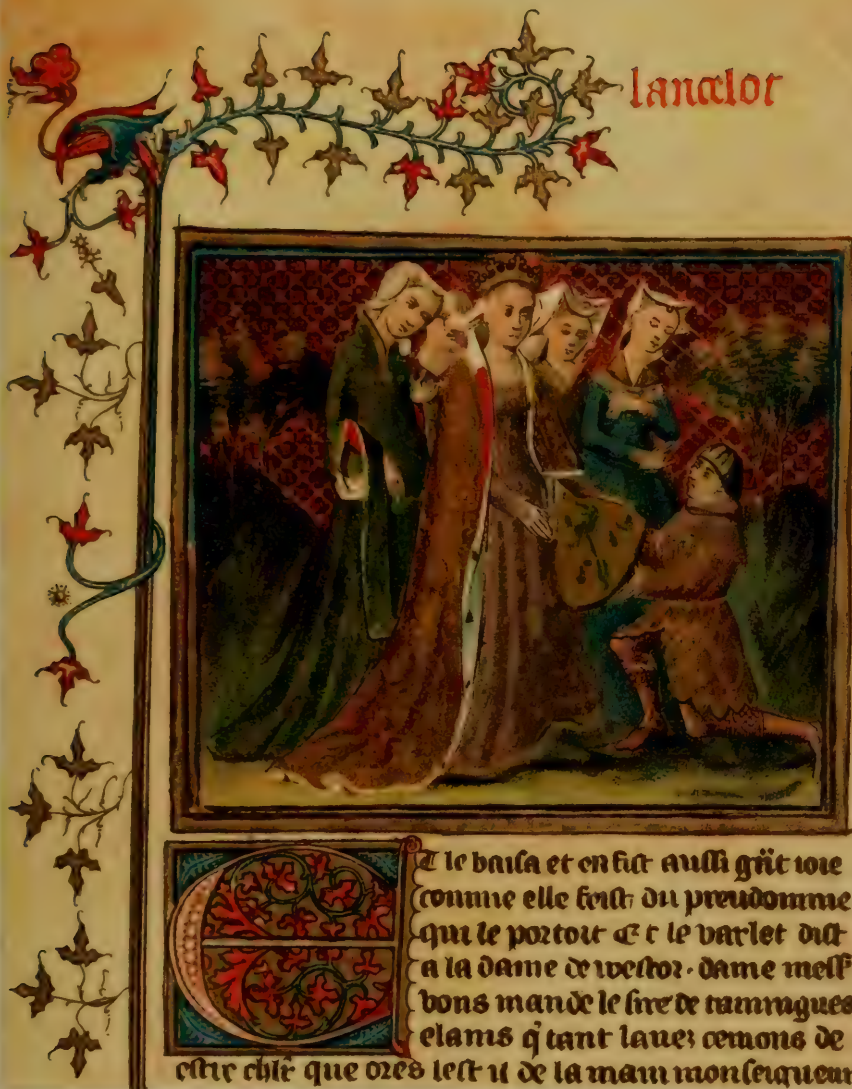 lancelot
Et le baisa et en fist aussi grāt ioie
comme elle feist du preudomme
qui le portoit Et le varlet dist
a la dame de westor. dame mess
vous mande le sire de
clamis q̄ tant de
estre chlr̄ que ores lest il de la main monseigneur